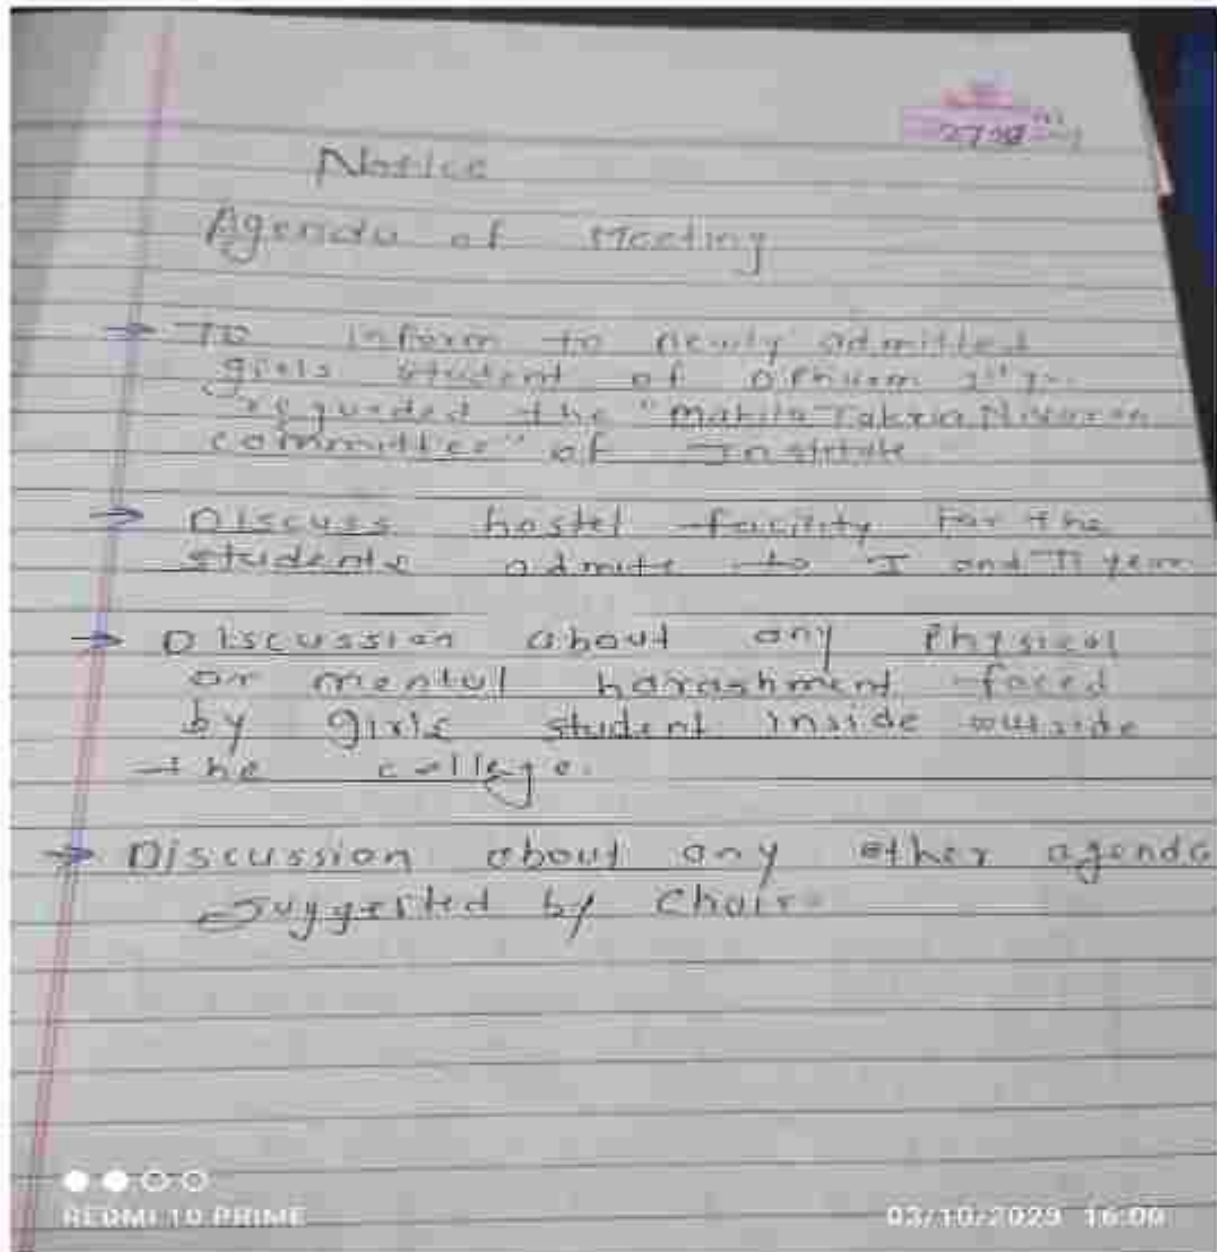 Notice
Agenda of Meeting
→ To inform to newly admitted
girls student of D Pharm 1st
reguarded the "Mahila Takrar Nivaran
committee" of Institute
→ Discuss hostel facility For the
students admute to I and II year
→ Discussion about any Physical
or mental harashment faced
by girls student inside outside
the college.
→ Discussion about any other agenda
suggested by Chair
REDMI 10 PRIME
03/10/2023 16:00